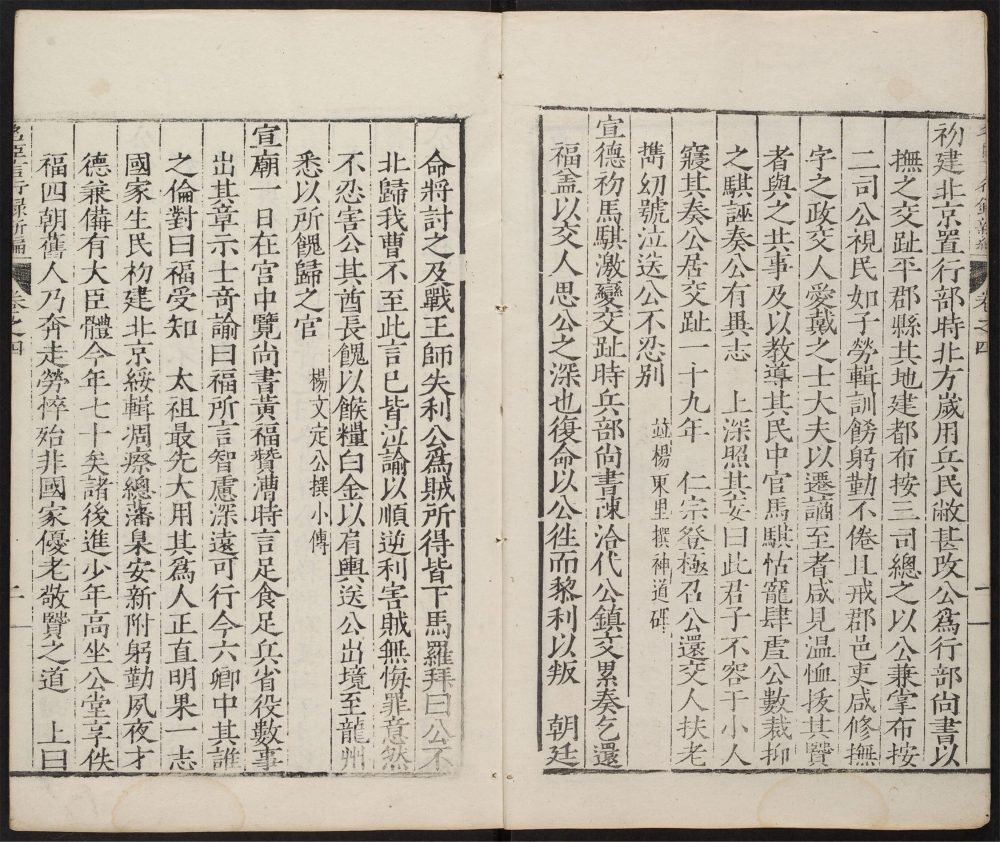 名臣言行錄新編
卷之四
十一
初建北京置行部時北方歲用兵民敝甚改公爲行部尚書以
撫之交趾平郡縣其地建都布按三司總之以公兼掌布按
二司公視民如子勞輯訓飭躬勤不倦且戒郡邑吏咸修撫
字之政交人愛戴之士大夫以遷謫至者咸見溫恤拔其賢
者與之共事及以教導其民中官馬騏怙寵肆虐公數裁抑
之騏誣奏公有異志　上深照其妄曰此君子不容于小人
寢其奏公居交趾一十九年　仁宗登極召公還交人扶老
攜幼號泣送公不忍別　並楊東里撰神道碑
宣德初馬騏激變交趾時兵部尚書陳洽代公鎮交累奏乞還
福葢以交人思公之深也復命以公徃而黎利以叛　朝廷
命將討之及戰王師失利公爲賊所得皆下馬羅拜曰公不
北歸我曹不至此言已皆泣諭以順逆利害賊無悔罪意然
不忍害公其酋長餽以餱糧白金以肩輿送公出境至龍州
悉以所餽歸之官　楊文定公撰小傳
宣廟一日在宮中覽尚書黃福贊漕時言足食足兵省役數事
出其章示士奇諭曰福所言智慮深遠可行今六卿中其誰
之倫對曰福受知　太祖最先大用其爲人正直明果一志
國家生民初建北京綏輯凋瘵總藩臬安新附躬勤夙夜才
德兼備有大臣體今年七十矣諸後進少年高坐公堂享佚
福四朝舊人乃奔走勞悴殆非國家優老敬賢之道　上曰
名臣言行錄新編
卷之四